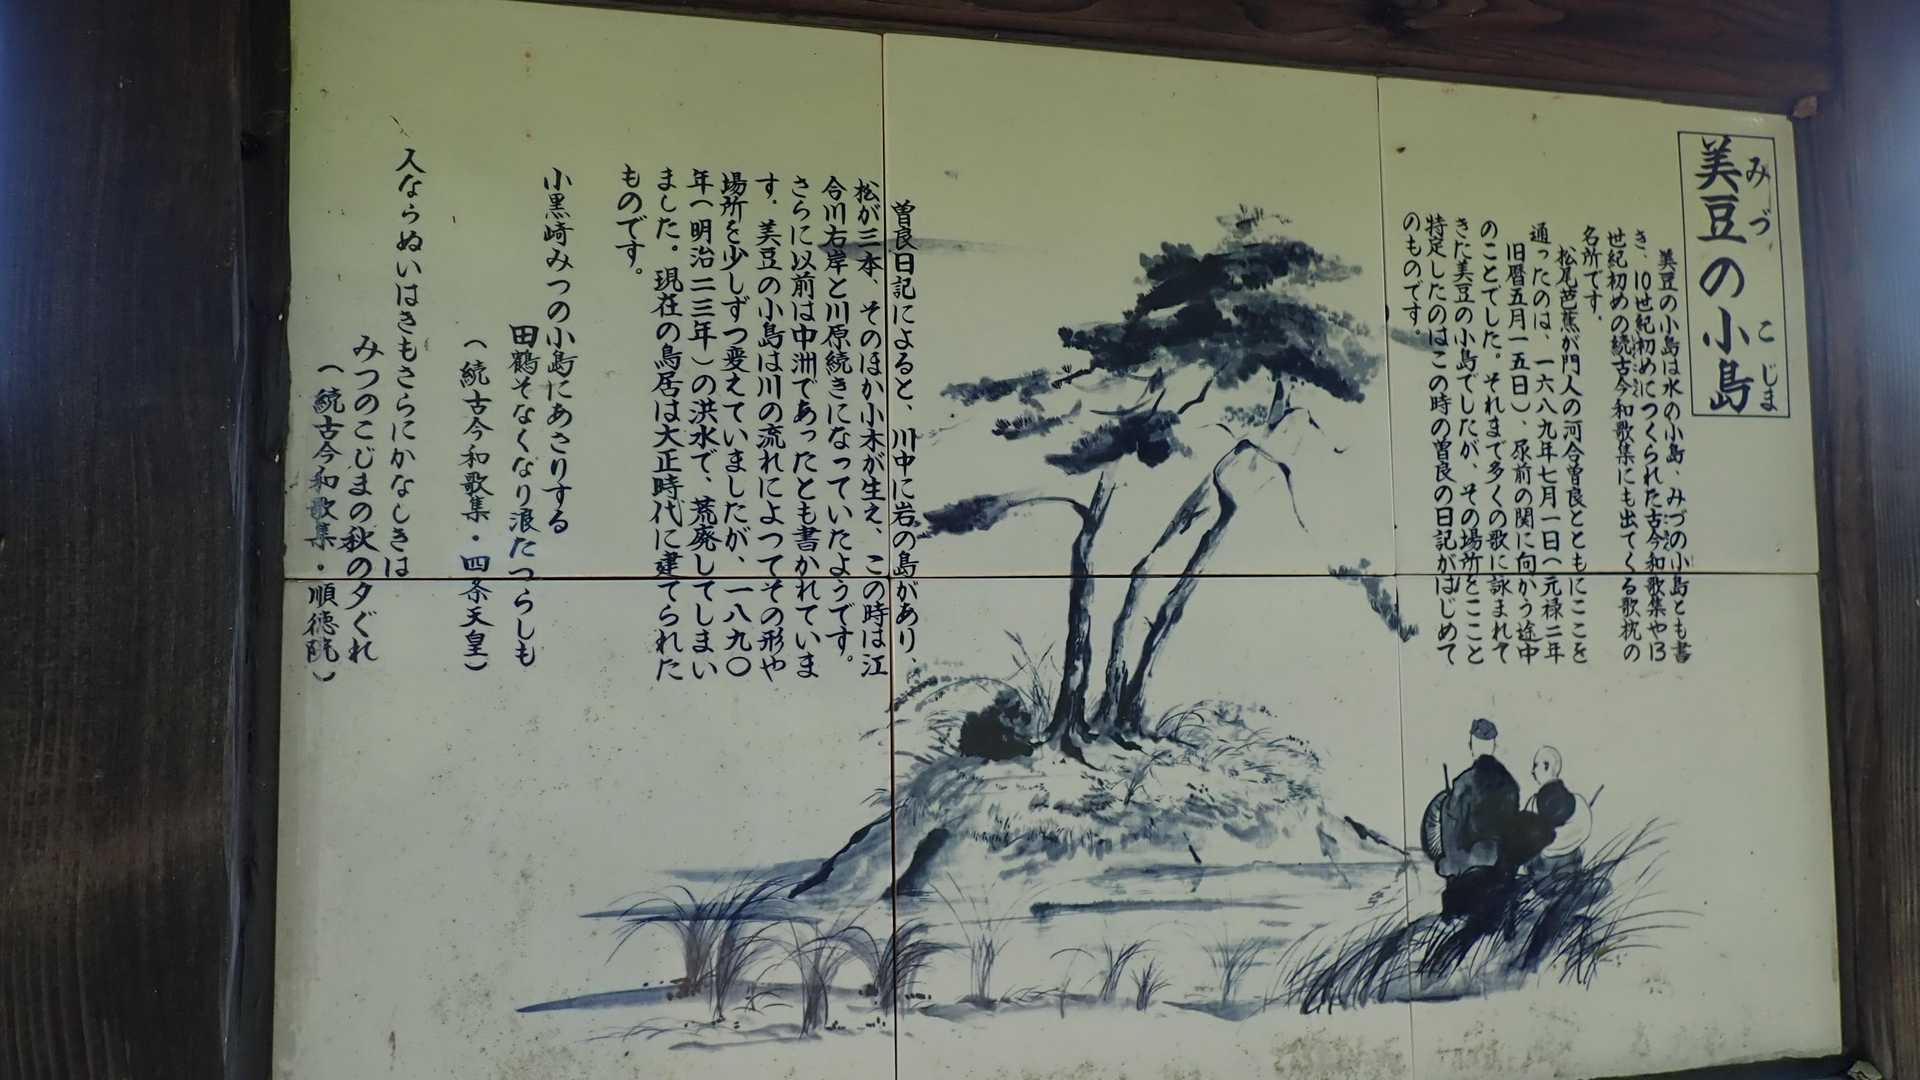 美豆の小島
みづ　こじま
美豆の小島は水の小島、みづの小島とも書
き、10世紀初めにつくられた古今和歌集や13
世紀初めの続古今和歌集にも出てくる歌枕の
名所です。
松尾芭蕉が門人の河合曽良とともにここを
通ったのは、一六八九年七月一日（元禄二年
旧暦五月一五日）、尿前の関に向かう途中
のことでした。それまで多くの歌に詠まれて
きた美豆の小島でしたが、その場所をここと
特定したのはこの時の曽良の日記がはじめて
のものです。
曽良日記によると、川中に岩の島があり、
松が三本、そのほか小木が生え、この時は江
合川右岸と川原続きになっていたようです。
さらに以前は中洲であったとも書かれていま
す。美豆の小島は川の流れによってその形や
場所を少しずつ変えていましたが、一八九〇
年（明治二三年）の洪水で、荒廃してしまい
ました。現在の鳥居は大正時代に建てられた
ものです。
小黒崎みつの小島にあさりする
田鶴そなくなり浪たつらしも
（続古今和歌集・四条天皇）
人ならぬいはきもさらにかなしきは
みつのこじまの秋の夕ぐれ
（続古今和歌集・順徳院）